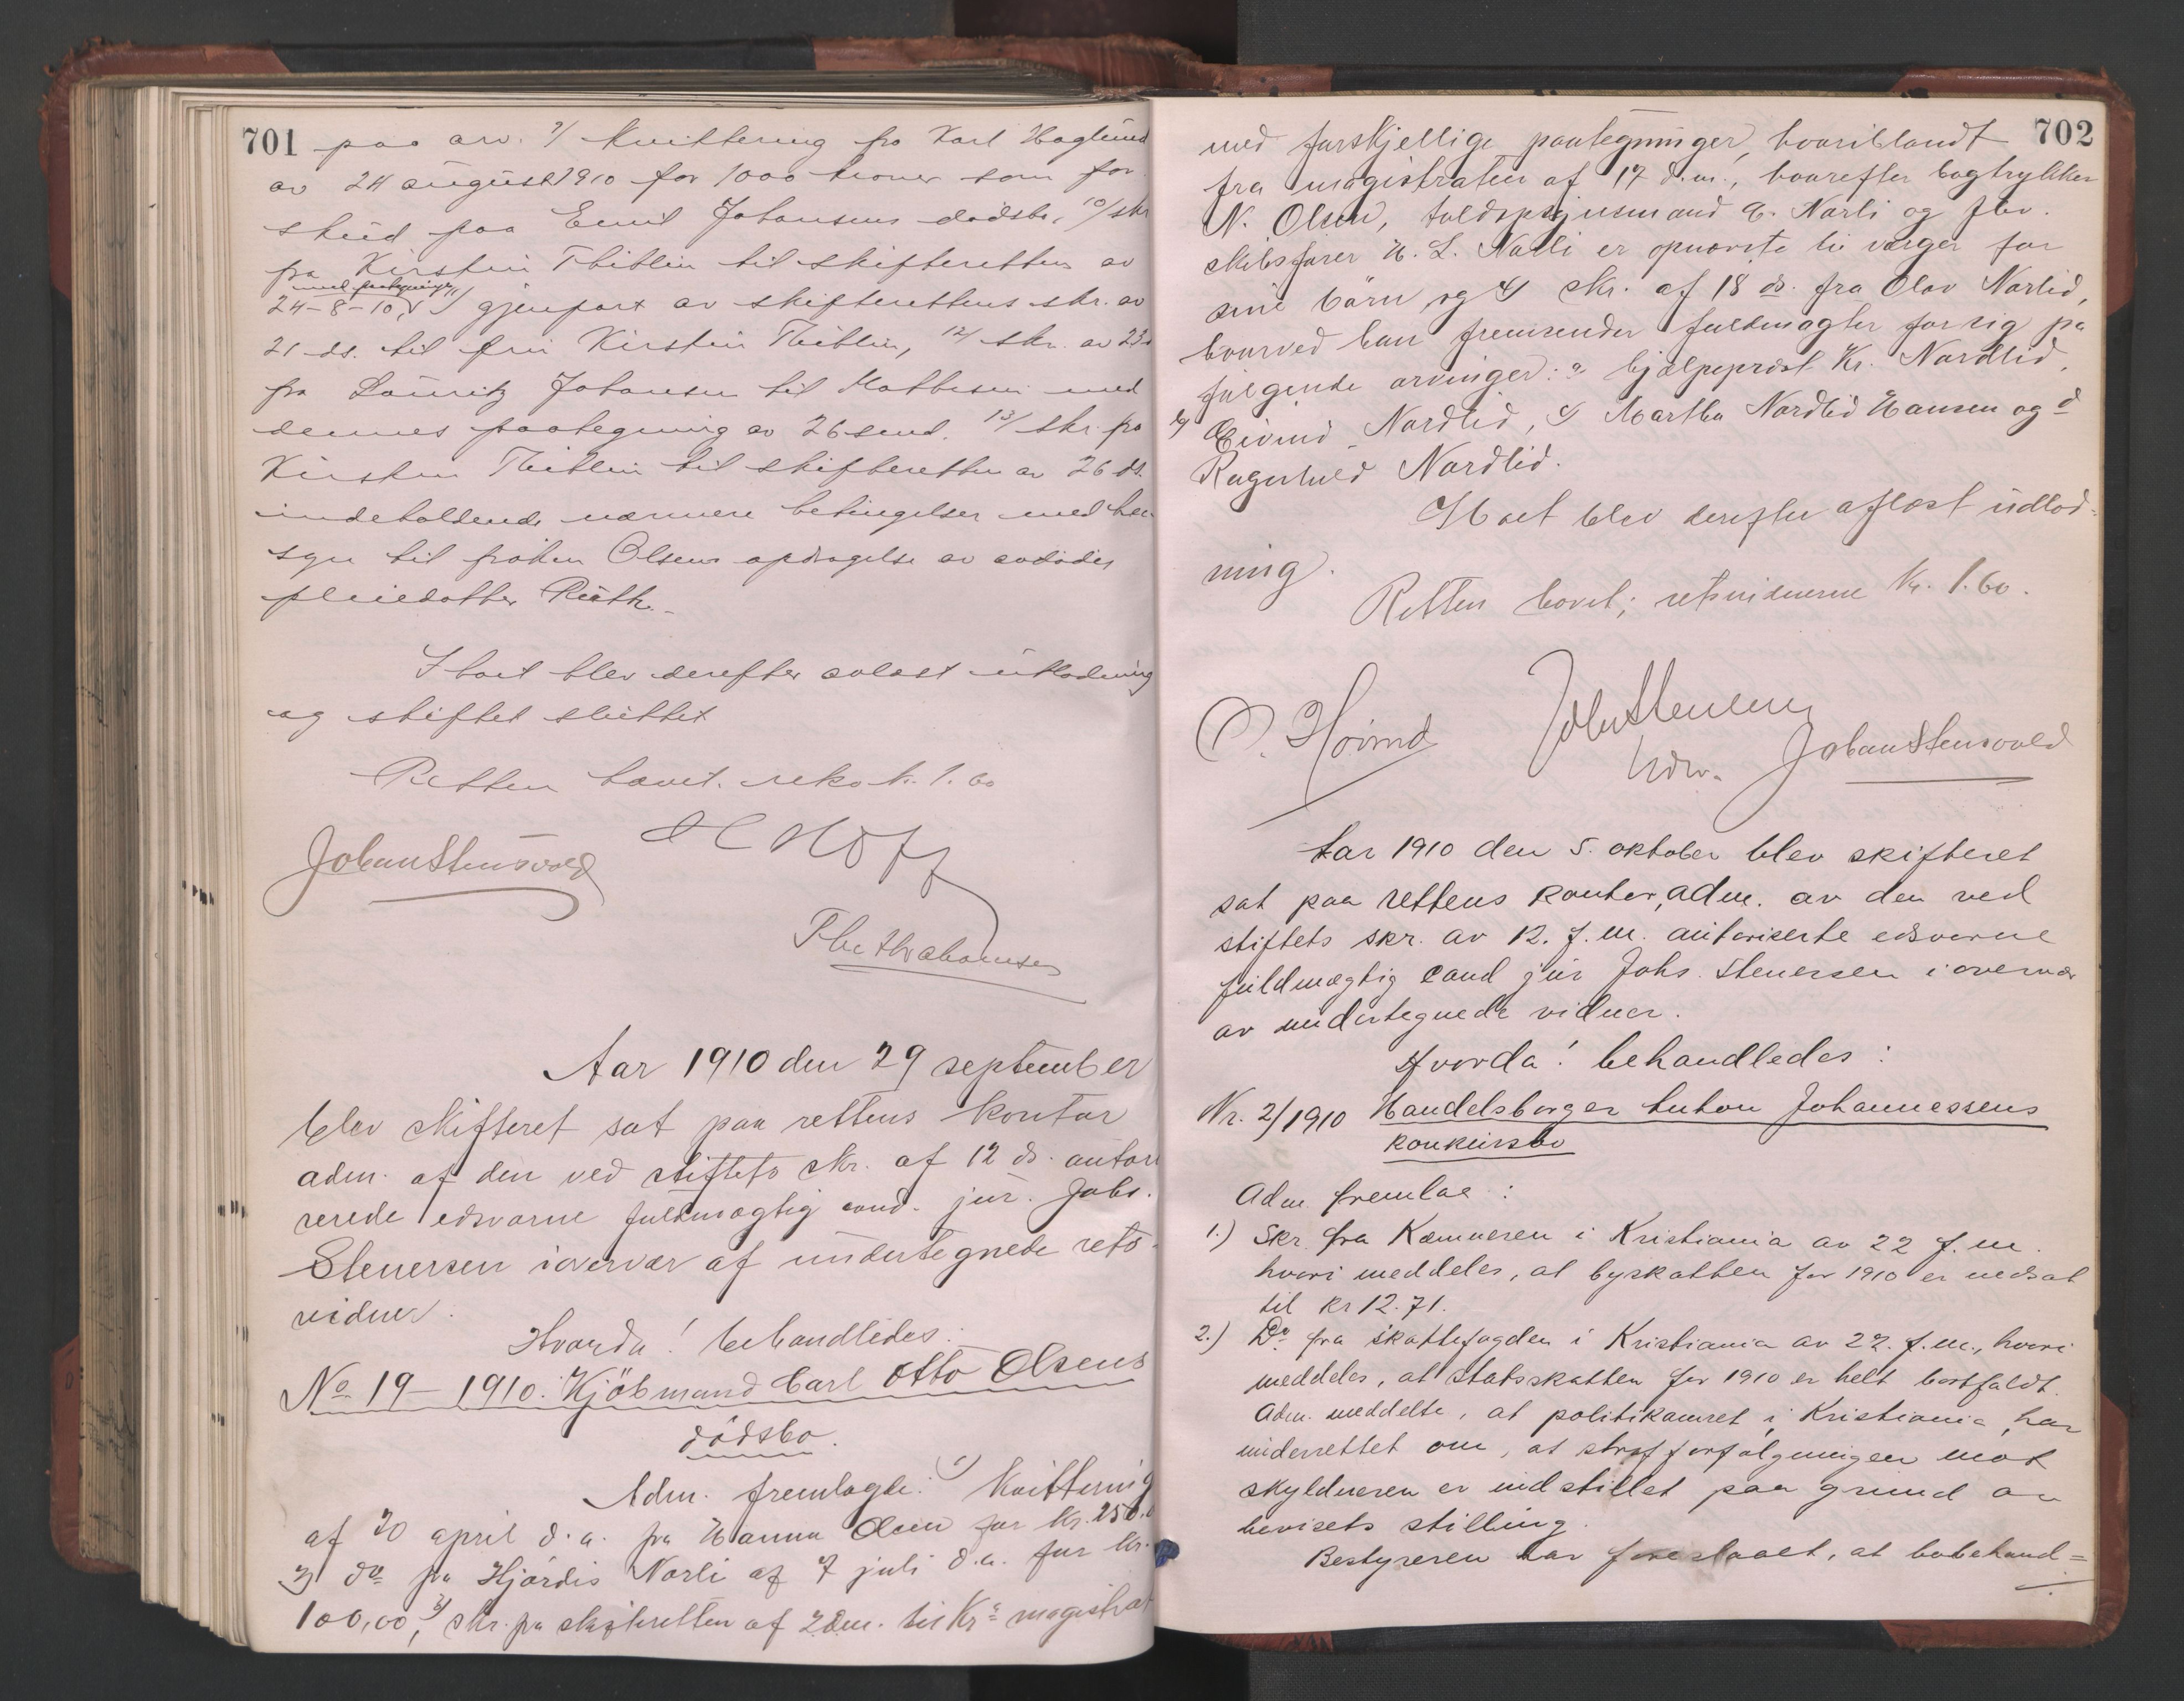 701
paa arv. 9/ Kvittering fra Karl Haglund
av 24 august 1910 for 1000 kroner som for-
skud paa Emil Johansens dødsbo, 10/ skr
fra Kirstin Thiblin til skifteretten av
med paategning
24-8-10, 11/ gjenpart av skifterettens skr. av
21 ds. til fru Kirstin Thiblin, 12/ skr. av 23
fra Lauritz Johansen til Mathesen med
dennes paategning av 26 send. 13/ skr. fra
Kirsten Thiblin til skifteretten av 26 ds.
indeholdende nærmere betingelser med hen
syn til frøken Olsens opdragelse av avdødes
pleiedatter Ruth.
I boet blev derefter avlæst utlodning
og skiftet sluttet
Retten hævet. reko k. 1.60
Johan Stensvold
Aar 1910 den 29 september
blev skifteret sat paa rettens kontor
adm. af den ved stiftets skr. af 12 ds. autori
serede edsvorne fuldmægtig cand. jur. Johs.
Stenersen i overvær af undertegnede rets-
vidner.
Hvorda! behandledes:
No. 19 - 1910. Kjöbmand Carl Otto Olsens
dödsbo.
Adm. fremlagde: 1) Kvittering
af 20 april d.a. fra Hanna Olsen for kr. 250.0
2) do fra Hjördis Narli af 7 juli d.a. for kr.
100,00, 3) skr. fra skifteretten af 2 dm. til Kra magistrat
702
med forskjellige paategninger, hvoriblandt
fra magistraten af 17 d.m., hvorefter bogtrykker
N. Olsen, toldopsynsmand C. Narli og fhv.
skibsfører H. L. Narli er opnævnte til værger for
sine börn, og 4) skr. af 18 ds. fra Olav Norlid,
hvorved han fremsender fuldmagter for sig på
følgende arvinger: a hjælpeprest Kr. Nordlid,
b) Eivind Nordlid, c) Martha Nordlid Hansen og d
Ragnhild Nordlid.
I boet blev derefter aflæst udlod=
ning.
Retten hævet; retsvidnerne Kr. 1.60.
O. Höimd
Joh Stenersen
Johan Stensvold
Aar 1910 den 5. oktober blev skifteret
sat paa rettens kontor, adm. av den ved
stiftets skr. av 12. f.m. autoriserte edsvorne
fuldmægtig cand jur Johs. Stenersen i overvær
av undertegnede vidner.
Hvorda! behandledes:
Nr. 2/1910 Handelsborger Anton Johannessens
konkursbo
Adm fremlae:
1.) Skr. fra Kæmneren i Kristiania av 22 f.m.
hvori meddeles, at byskatten for 1910 er nedsat
til kr 12.71.
2.) Do fra skattefogden i Kristiania av 22. f.m., hvori
meddeles, at statsskatten for 1910 er helt bortfaldt.
Adm. meddelte, at politikamret i Kristiania har
underrettet om, at strafforfølgningen mot
skyldneren er indstillet paa grund av
bevisets stilling.
Bestyreren har foreslaaet, at bobehand=